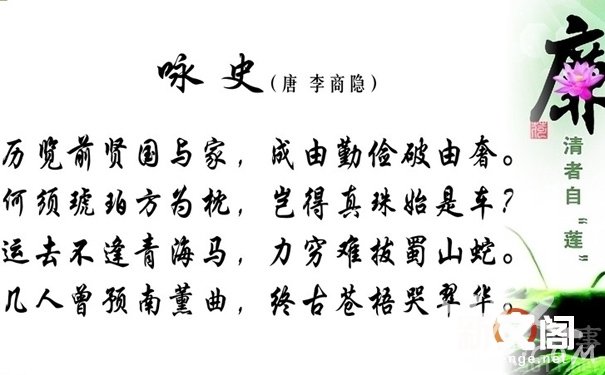 咏史(唐 李商隐)
历览前贤国与家，成由勤俭破由奢。
何须琥珀方为枕，岂得真珠始是车？
运去不逢青海马，力穷难拔蜀山蛇。
几人曾预南薰曲，终古苍梧哭翠华。
廉
清者自“莲”
文阁
nge.net